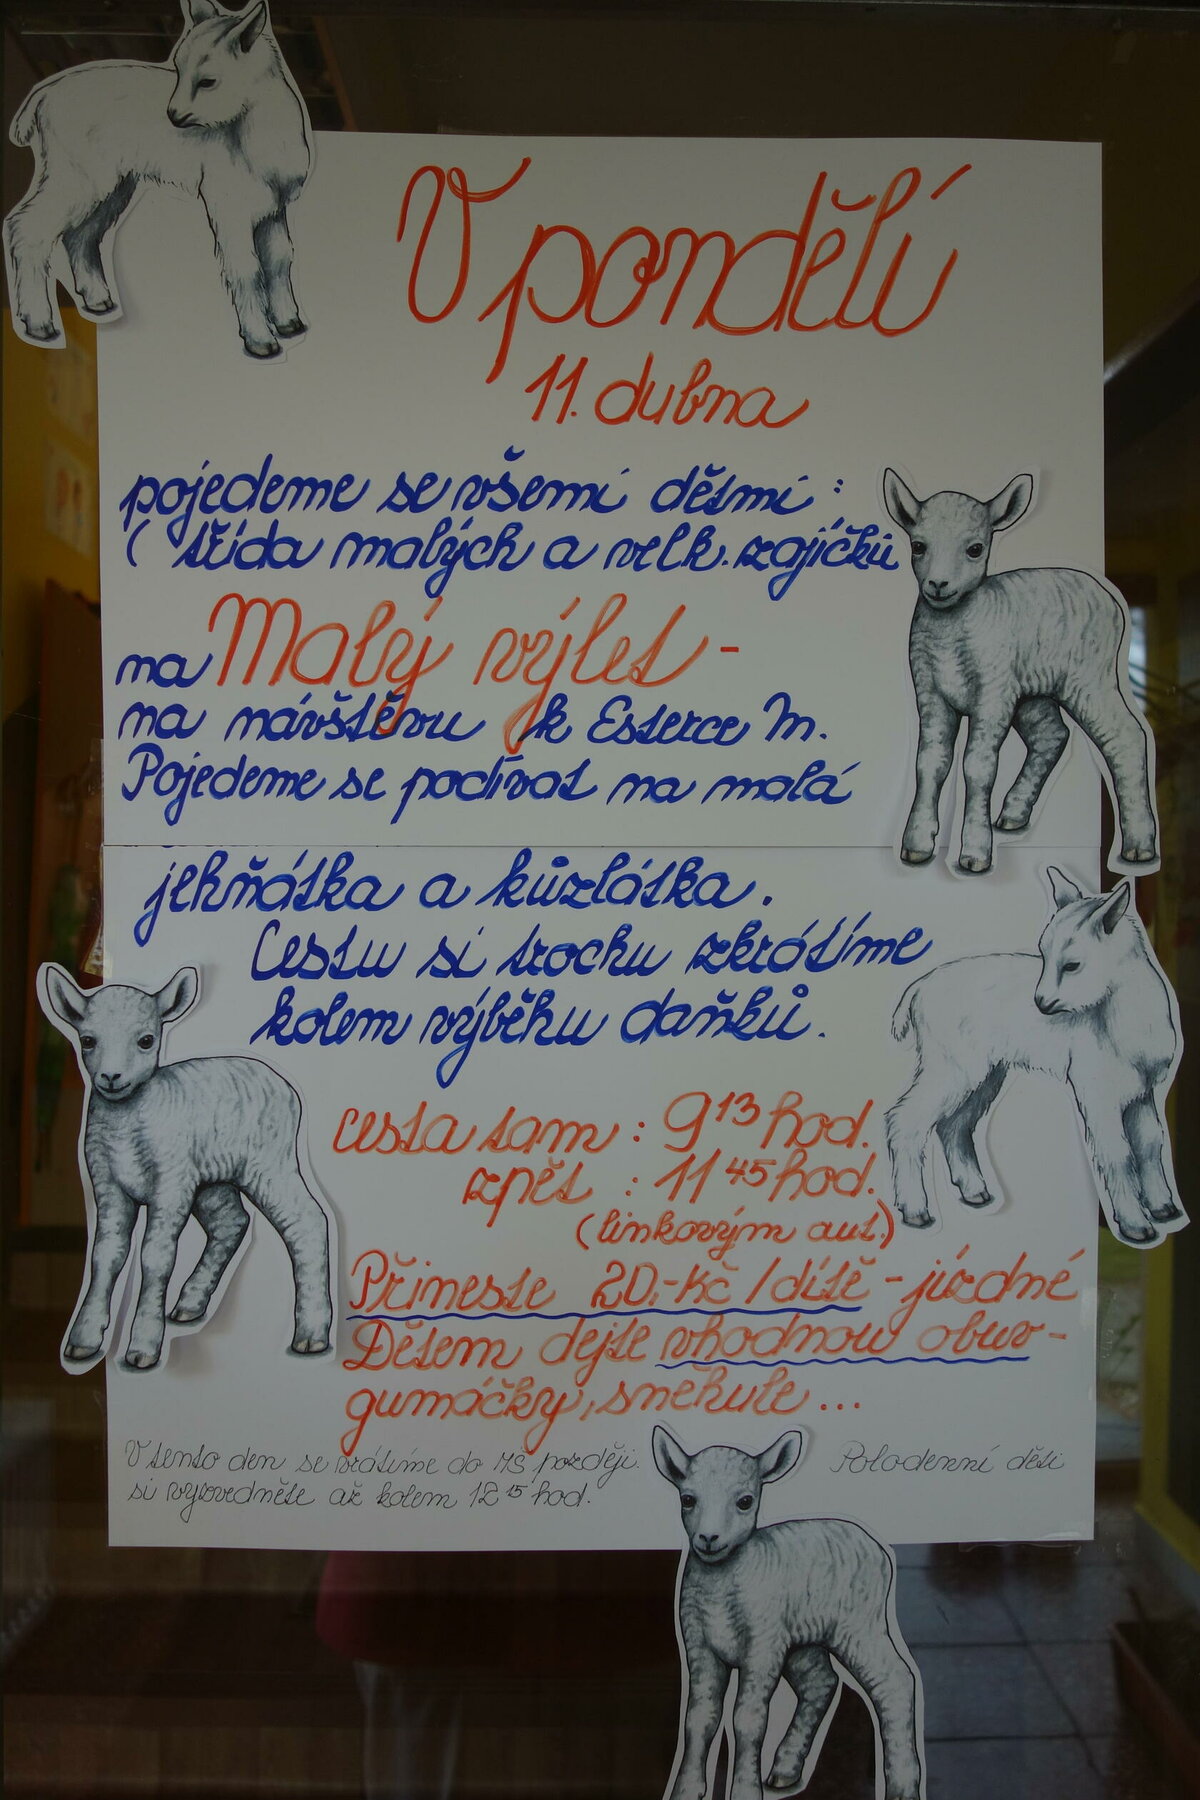 V pondělí
11. dubna
pojedeme se všemi dětmi :
( třída malých a velk. zajíčků
na Malý výlet -
na návštěvu k Esterce M.
Pojedeme se podívat na malá
jehňátka a kůzlátka.
Cestu si trochu zkrátíme
kolem výběhu daňků.
cesta tam : 9 13 hod.
zpět : 11 45 hod.
(linkovým aut.)
Přineste 20,-Kč /dítě - jízdné
Dětem dejte vhodnou obuv -
gumáčky, sněhule ...
V tento den se vrátíme do MŠ později. Polodenní děti
si vyzvedněte až kolem 12 15 hod.